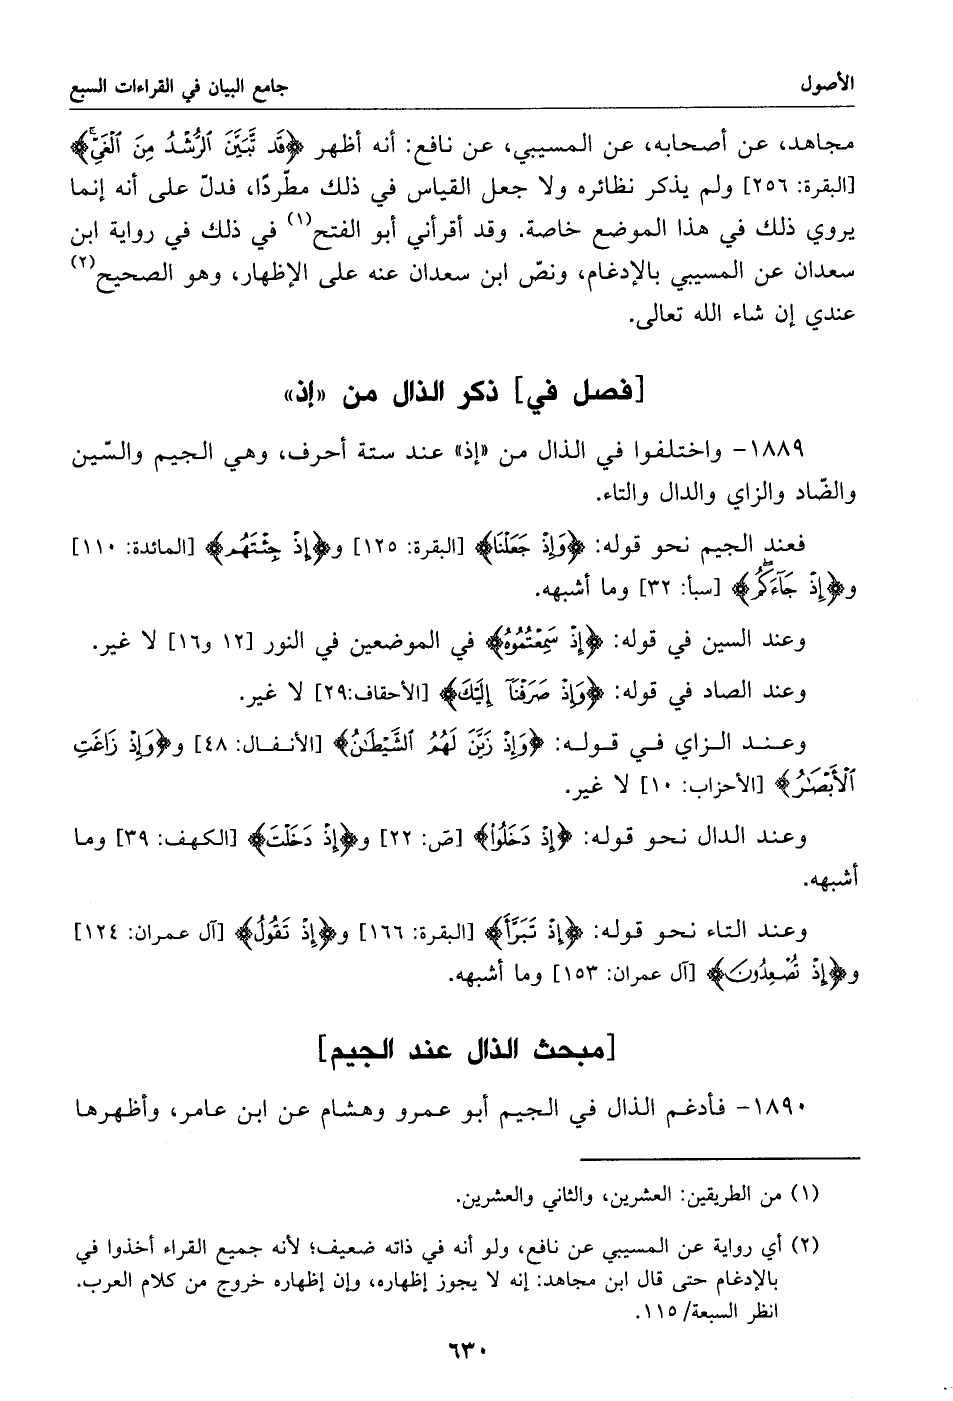 الأصول جامع البيان في القراءات السبع
مجاهد، عن أصحابه، عن المسيبي، عن نافع: أنه أظهر ﴿قَد تَّبَيَّنَ ٱلرُّشْدُ مِنَ ٱلْغَيِّۚ﴾
[البقرة: ٢٥٦] ولم يذكر نظائره ولا جعل القياس في ذلك مطّردًا، فدلّ على أنه إنما
يروي ذلك في هذا الموضع خاصة. وقد أقرأني أبو الفتح(١) في ذلك في رواية ابن
سعدان عن المسيبي بالإدغام، ونصّ ابن سعدان عنه على الإظهار، وهو الصحيح(٢)
عندي إن شاء الله تعالى.
[فصل في] ذكر الذال من «إذ»
١٨٨٩- واختلفوا في الذال من «إذ» عند ستة أحرف، وهي الجيم والسّين
والصّاد والزاي والدال والتاء.
فعند الجيم نحو قوله: ﴿وَإِذْ جَعَلْنَا﴾ [البقرة: ١٢٥] و﴿إِذْ جِئْتَهُم﴾ [المائدة: ١١٠]
و﴿إِذْ جَآءَكُمۖ﴾ [سبأ: ٣٢] وما أشبهه.
وعند السين في قوله: ﴿إِذْ سَمِعْتُمُوهُ﴾ في الموضعين في النور [١٢ و١٦] لا غير.
وعند الصاد في قوله: ﴿وَإِذْ صَرَفْنَآ إِلَيْكَ﴾ [الأحقاف:٢٩] لا غير.
وعند الزاي في قوله: ﴿وَإِذْ زَيَّنَ لَهُمُ ٱلشَّيْطَٰنُ﴾ [الأنفال: ٤٨] و﴿وَإِذْ زَاغَتِ
ٱلْأَبْصَٰرُ﴾ [الأحزاب: ١٠] لا غير.
وعند الدال نحو قوله: ﴿إِذْ دَخَلُوا۟﴾ [صَ: ٢٢] و﴿إِذْ دَخَلْتَ﴾ [الكهف: ٣٩] وما
أشبهه.
وعند التاء نحو قوله: ﴿إِذْ تَبَرَّأَ﴾ [البقرة: ١٦٦] و﴿إِذْ تَقُولُ﴾ [آل عمران: ١٢٤]
و﴿إِذْ تُصْعِدُونَ﴾ [آل عمران: ١٥٣] وما أشبهه.
[مبحث الذال عند الجيم]
١٨٩٠- فأدغم الذال في الجيم أبو عمرو وهشام عن ابن عامر، وأظهرها
(١) من الطريقين: العشرين، والثاني والعشرين.
(٢) أي رواية عن المسيبي عن نافع، ولو أنه في ذاته ضعيف؛ لأنه جميع القراء أخذوا في
بالإدغام حتى قال ابن مجاهد: إنه لا يجوز إظهاره، وإن إظهاره خروج من كلام العرب.
انظر السبعة/ ١١٥.
٦٣٠